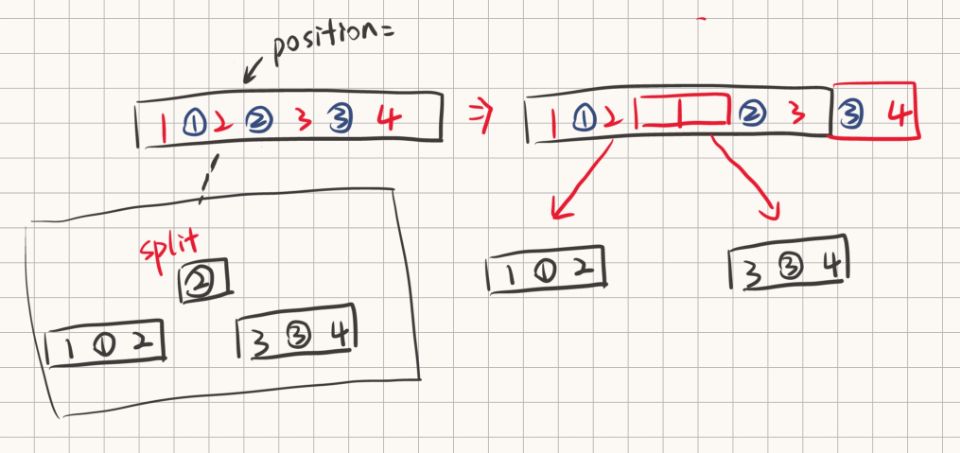 position=
1 ① 2 ② 3 ③ 4
⇒
1 ① 2 | ② 3 ③ 4
split
②
1 ① 2
3 ③ 4
1 ① 2
3 ③ 4